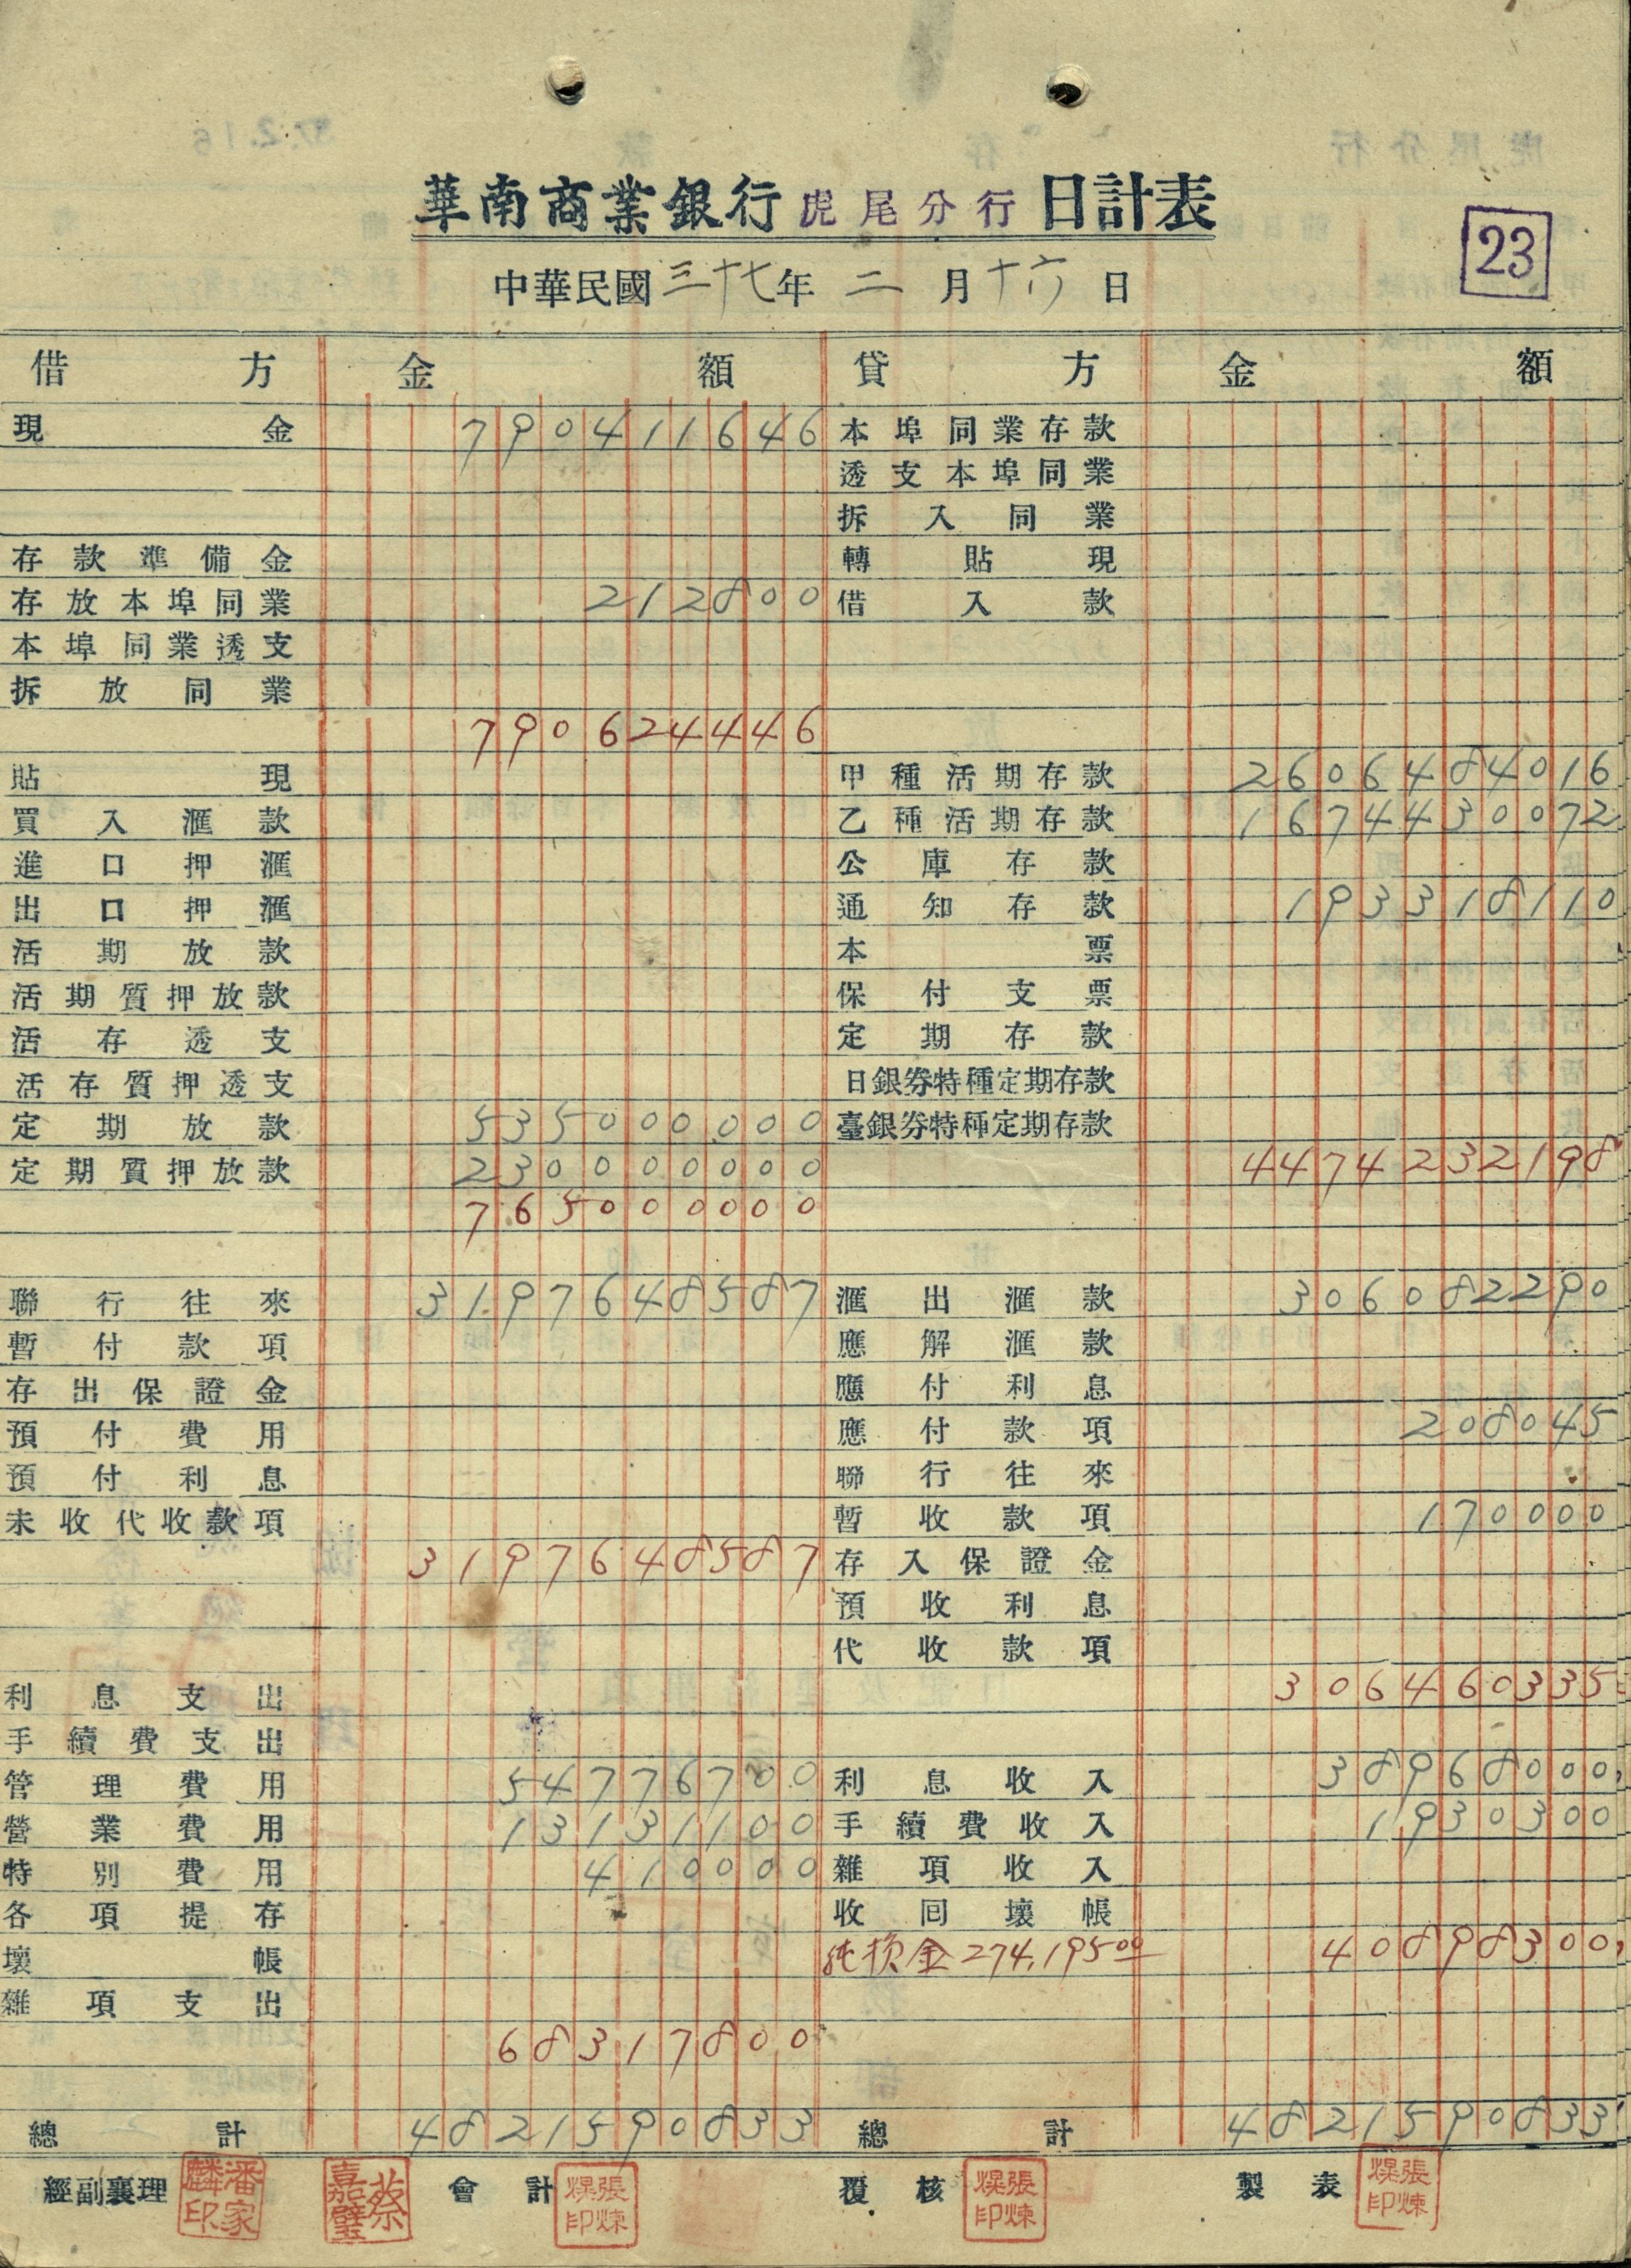 華南商業銀行虎尾分行日計表
23
中華民國三十七年二月十六日
借方 金額 貸方 金額
現金 790411646 本埠同業存款
透支本埠同業
拆入同業
存款準備金 轉貼現
存放本埠同業 212800 借入款
本埠同業透支
拆放同業
790624446
貼現 甲種活期存款 2606484016
買入滙款 乙種活期存款 1674430072
進口押滙 公庫存款
出口押滙 通知存款 193318110
活期放款 本票
活期質押放款 保付支票
活存透支 定期存款
活存質押透支 日銀券特種定期存款
定期放款 535000000 臺銀券特種定期存款
定期質押放款 230000000 4474232198
765000000
聯行往來 3197648587 滙出滙款 306082290
暫付款項 應解滙款
存出保證金 應付利息
預付費用 應付款項 208045
預付利息 聯行往來
未收代收款項 暫收款項 170000
3197648587 存入保證金
預收利息
代收款項
利息支出 306460335
手續費支出
管理費用 54776700 利息收入 38968000
營業費用 13131100 手續費收入 1930300
特別費用 410000 雜項收入
各項提存 收回壞帳
壞帳 純損金274,19500 40898300
雜項支出
68317800
總計 4821590833 總計 4821590833
經副襄理 潘家麟印 蔡嘉璧 會計 張煉煤印 覆核 張煉煤印 製表 張煉煤印